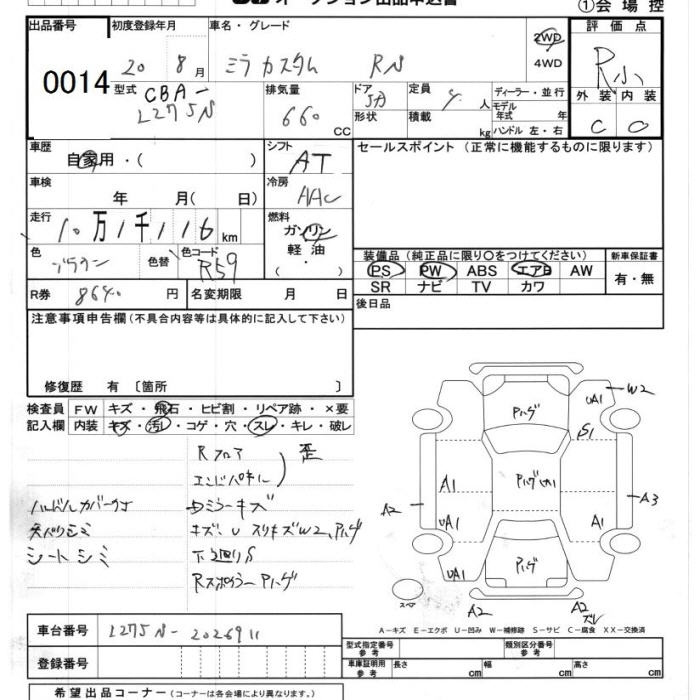 オークション出品申込書
①会場控
出品番号 初度登録年月 車名・グレード 評価点
0014 20 8月 ミラカスタム RN 2WD 4WD R小
型式 CBA- L275N 排気量 660 CC
ドア 5d 形状 定員 4人 積載 kg
ディーラー・並行 モデル年式 年式 ハンドル 左・右
外装 内装
C C
車歴 自家用・( )
シフト AT
セールスポイント (正常に機能するものに限ります)
車検 年 月( 日)
冷房 AAC
走行 10万1千116km
燃料 ガソリン 軽油 ( ・ )
色 ブラウン 色替 色コード R59
装備品 (純正品に限り○をつけてください) 新車保証書
PS PW ABS エアB AW 有・無
SR ナビ TV カワ
R券 8640 円 名変期限 月 日
後日品
注意事項申告欄(不具合内容等は具体的に記入して下さい)
修復歴 有 〔箇所 〕
検査員 FW キズ・飛石・ヒビ割・リペア跡・×要
記入欄 内装 キズ・汚レ・コゲ・穴・スレ・キレ・破レ
Rフロア
エンドパネル
歪
ハンドルカバー付
天バリシミ
シートシミ
Dミラーキズ
キズ、U スリキズW2、Pハゲ
下廻りS
Rスポイラー Pハゲ
Pハゲ
UA1
W2
S1
A1
Pハゲ UA1
A2
A3
UA1
A1
UA1
Pハゲ
スペア
A2
A2
ズレ
A-キズ E-エクボ U-凹み W-補修跡 S-サビ C-腐食 XX-交換済
車台番号 L275N- 2026911
型式指定番号 参考 類別区分番号 参考
登録番号
車庫証明用 参考 長さ cm 幅 cm 高さ cm
希望出品コーナー (コーナーは各会場により異なります。)